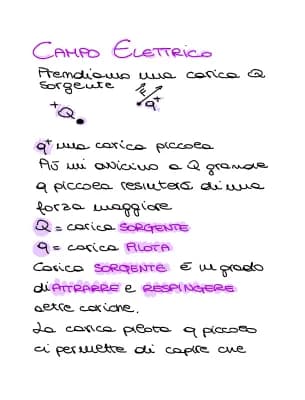 CAMPO ELETTRICO
Prendiamo una carica Q
sorgente
+Q
F
q+
q+ una carica piccola
Più mi avvicino a Q grande
q piccola risentirà di una
forza maggiore
Q = carica SORGENTE
q = carica PILOTA
Carica SORGENTE È in grado
di ATTRARRE e RESPINGERE
altre cariche.
La carica pilota q piccolo
ci permette di capire che